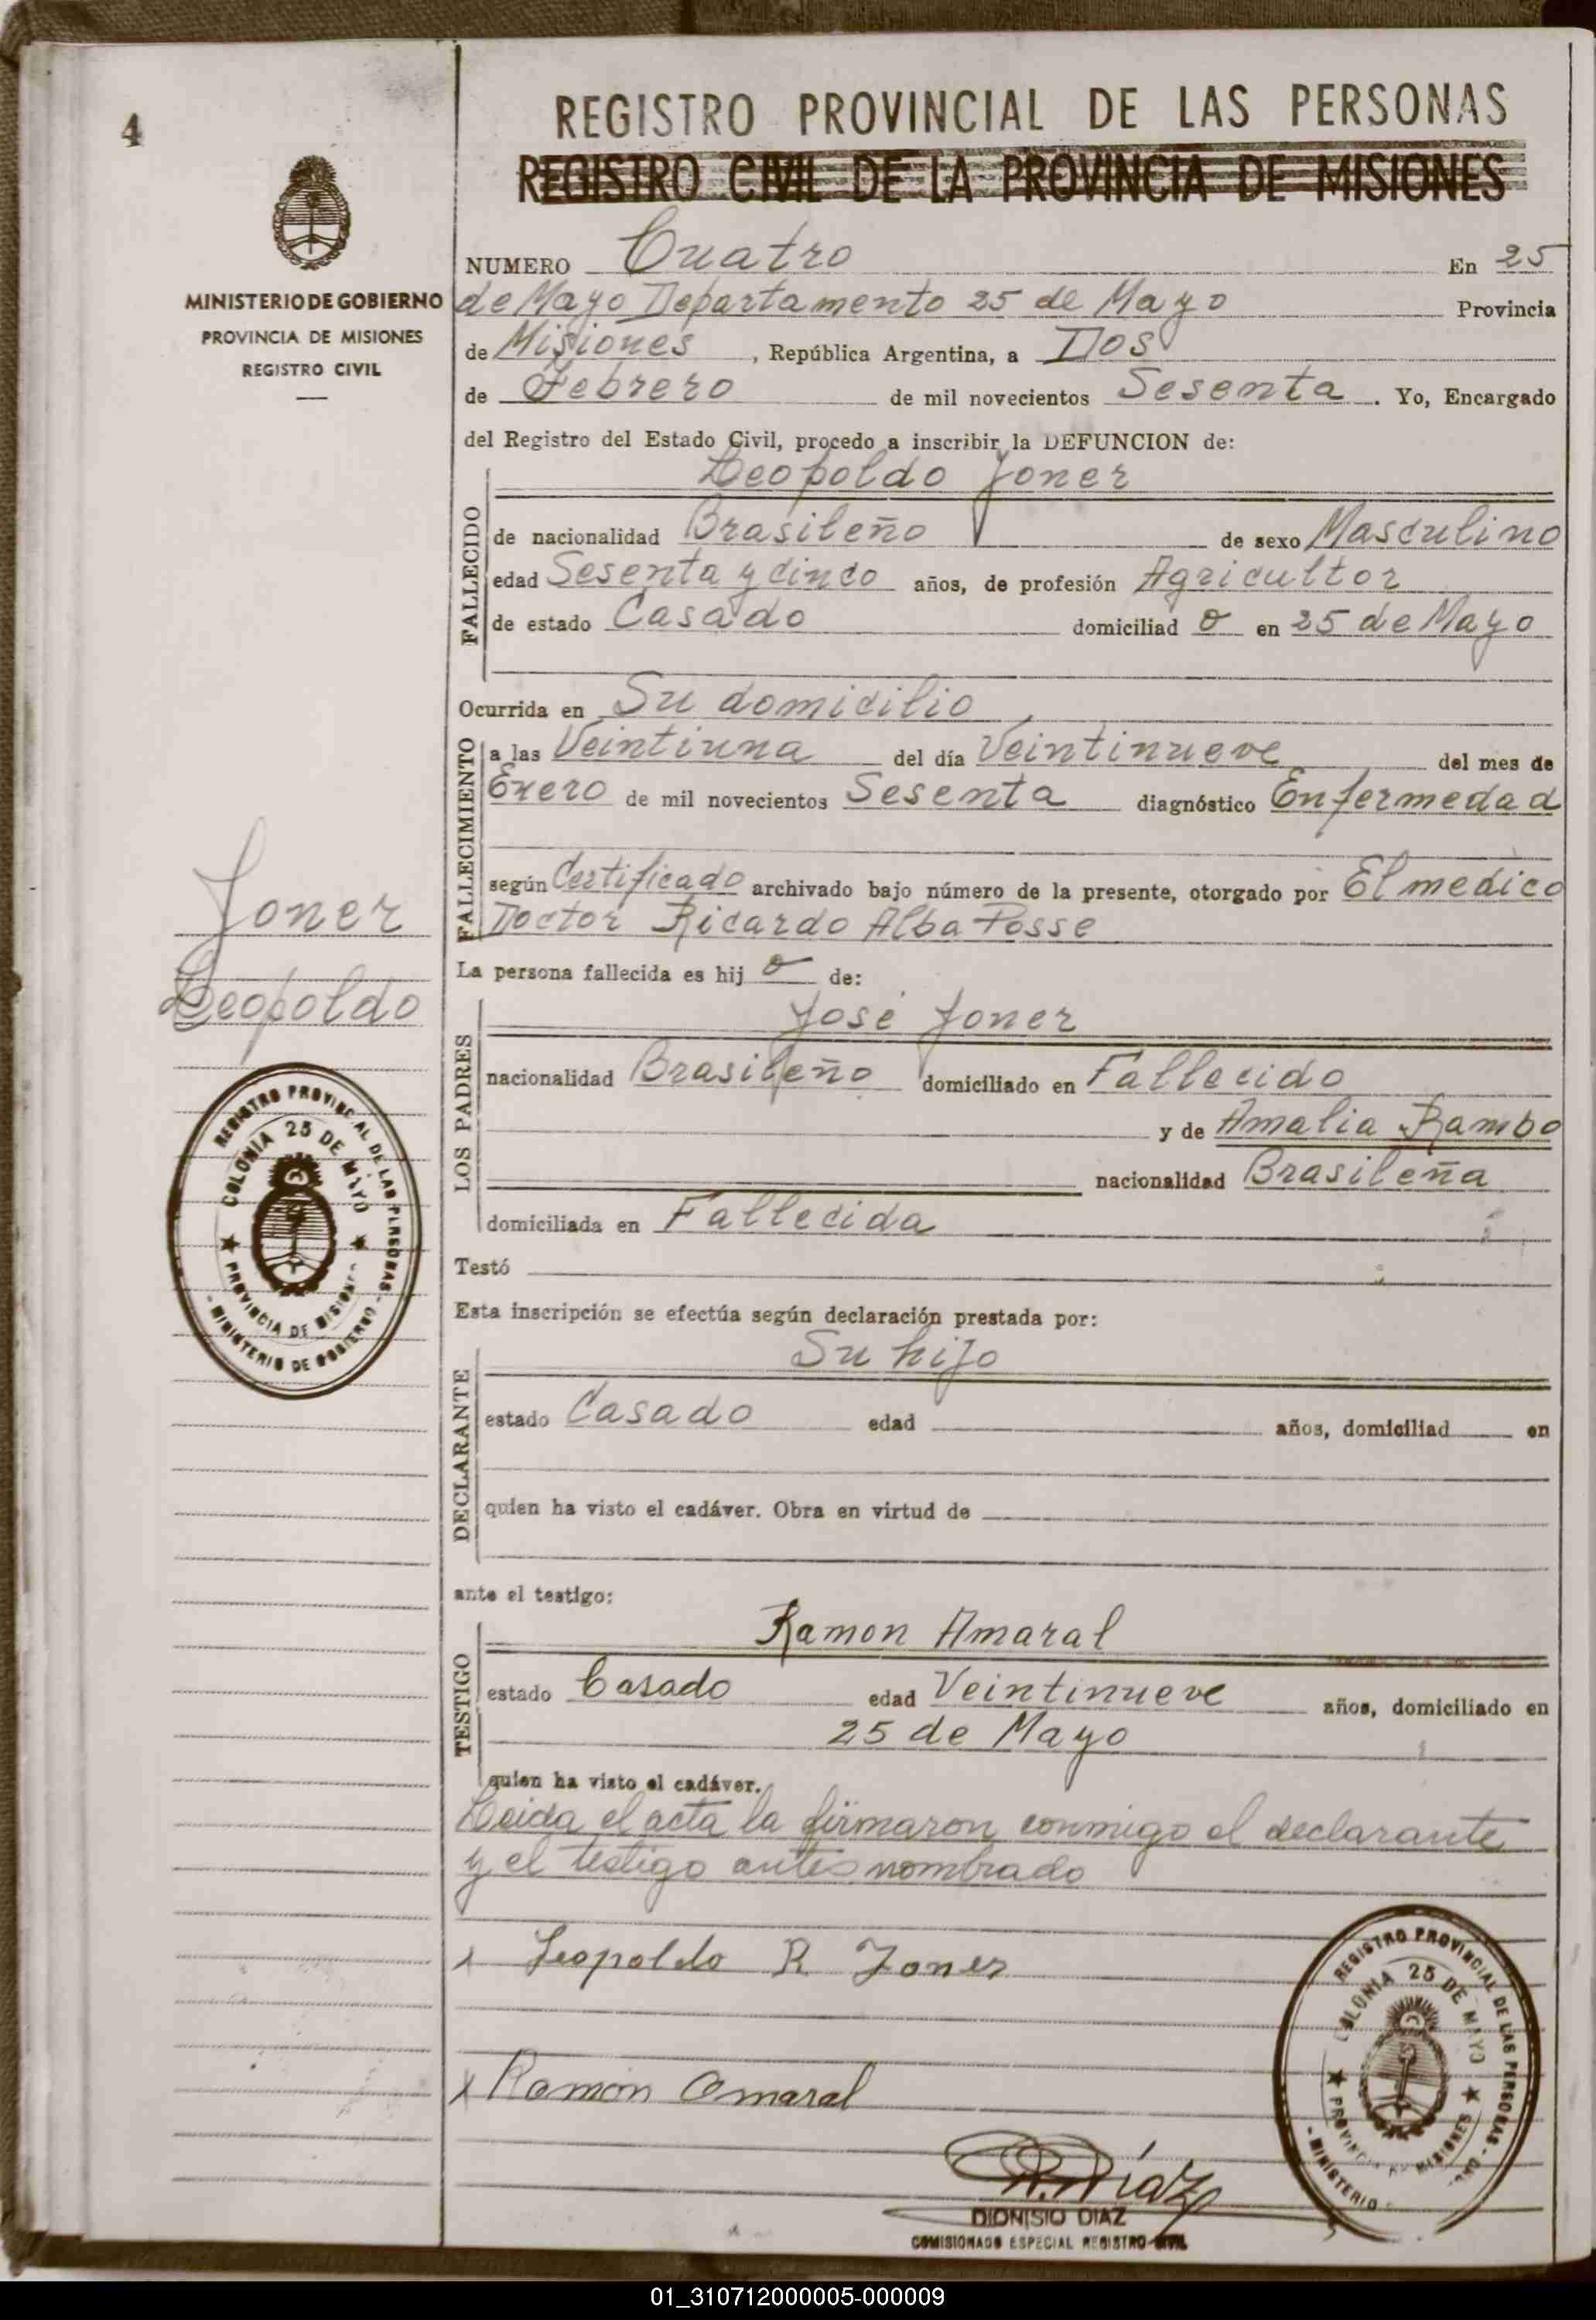 4
REGISTRO PROVINCIAL DE LAS PERSONAS
REGISTRO CIVIL DE LA PROVINCIA DE MISIONES
MINISTERIO DE GOBIERNO
PROVINCIA DE MISIONES
REGISTRO CIVIL
NUMERO Cuatro En 25
de Mayo Departamento 25 de Mayo Provincia
de Misiones, República Argentina, a Dos
de Febrero de mil novecientos Sesenta. Yo, Encargado
del Registro del Estado Civil, procedo a inscribir la DEFUNCION de:
Leopoldo Joner
FALLECIDO
de nacionalidad Brasileño de sexo Masculino
edad Sesenta y cinco años, de profesión Agricultor
de estado Casado domiciliad o en 25 de Mayo
Ocurrida en Su domicilio
FALLECIMIENTO
a las Veintiuna del día Veintinueve del mes de
Enero de mil novecientos Sesenta diagnóstico Enfermedad
según Certificado archivado bajo número de la presente, otorgado por El medico
Doctor Ricardo Alba Posse
Joner
Leopoldo
La persona fallecida es hij o de:
LOS PADRES
José Joner
nacionalidad Brasileño domiciliado en Fallecido
y de Amalia Rambo
nacionalidad Brasileña
domiciliada en Fallecida
REGISTRO PROVINCIAL DE LAS PERSONAS
COLONIA 25 DE MAYO
PROVINCIA DE MISIONES
- MINISTERIO DE GOBIERNO -
Testó
Esta inscripción se efectúa según declaración prestada por:
DECLARANTE
Su hijo
estado Casado edad años, domiciliad en
quien ha visto el cadáver. Obra en virtud de
ante el testigo:
TESTIGO
Ramon Amaral
estado Casado edad Veintinueve años, domiciliado en
25 de Mayo
quien ha visto el cadáver.
Leida el acta la firmaron conmigo el declarante
y el testigo antes nombrado
x Leopoldo R Joner
x Ramon Amaral
REGISTRO PROVINCIAL DE LAS PERSONAS
COLONIA 25 DE MAYO
PROVINCIA DE MISIONES
- MINISTERIO
Díaz
DIONISIO DIAZ
COMISIONADO ESPECIAL REGISTRO CIVIL
01_310712000005-000009